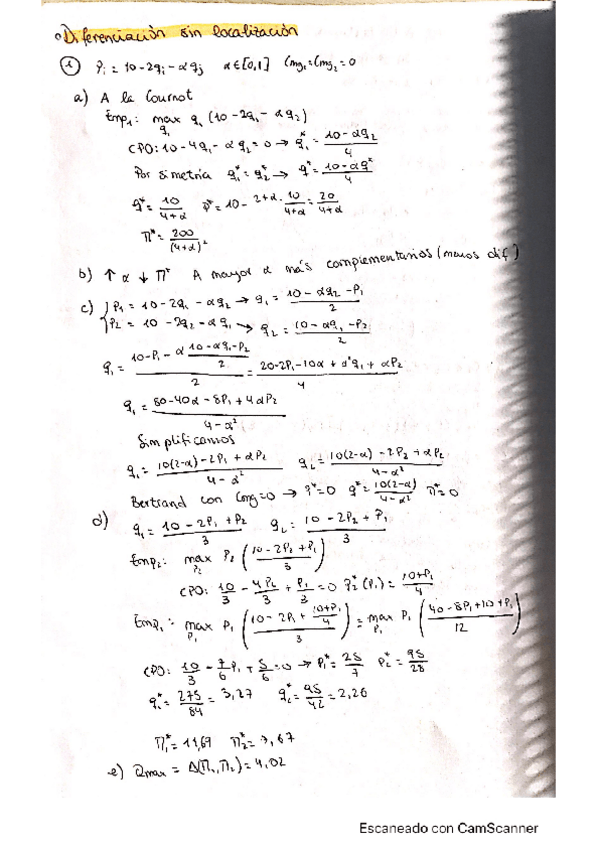 Diferenciación sin localización
① Pi = 10-2qi-αqj α∈[0,1] Cmg1=Cmg2=0
a) A la Cournot
Emp1: max q1 (10-2q1-αq2)
q1
CPO: 10-4q1-αq2=0 → q1* = 10-αq2 / 4
Por simetría q1*=q2* → q* = 10-αq* / 4
q* = 10 / 4+α P* = 10 - 2+α · 10 / 4+α = 20 / 4+α
Π* = 200 / (4+α)²
b) ↑α ↓Π* A mayor α más complementarios (menos dif)
c) { P1 = 10-2q1-αq2 → q1 = 10-αq2-P1 / 2
P2 = 10-2q2-αq1 → q2 = 10-αq1-P2 / 2
q1 = 10-P1-α 10-αq1-P2 / 2 / 2 = 20-2P1-10α+α²q1+αP2 / 4
q1 = 80-40α-8P1+4αP2 / 4-α²
Simplificamos
q1 = 10(2-α)-2P1+αP2 / 4-α² q2 = 10(2-α)-2P2+αP2 / 4-α²
Bertrand con Cmg=0 → P*=0 q* = 10(2-α) / 4-α² Π*=0
d) q1 = 10-2P1+P2 / 3 q2 = 10-2P2+P1 / 3
Emp2: max P2 (10-2P2+P1 / 3)
P2
CPO: 10/3 - 4P2/3 + P1/3 = 0 P2*(P1) = 10+P1 / 4
Emp1: max P1 (10-2P1+ 10+P1 / 4 / 3) = max P1 (40-8P1+10+P1 / 12)
P1 P1
CPO: 10/3 - 7/6 P1 + 5/6 = 0 → P1* = 25/7 P2* = 95/28
q1* = 275/84 = 3,27 q2* = 95/42 = 2,26
Π1* = 11,69 Π2* = 7,67
e) Qmax = Δ(Π1,Π2) = 4,02
Escaneado con CamScanner